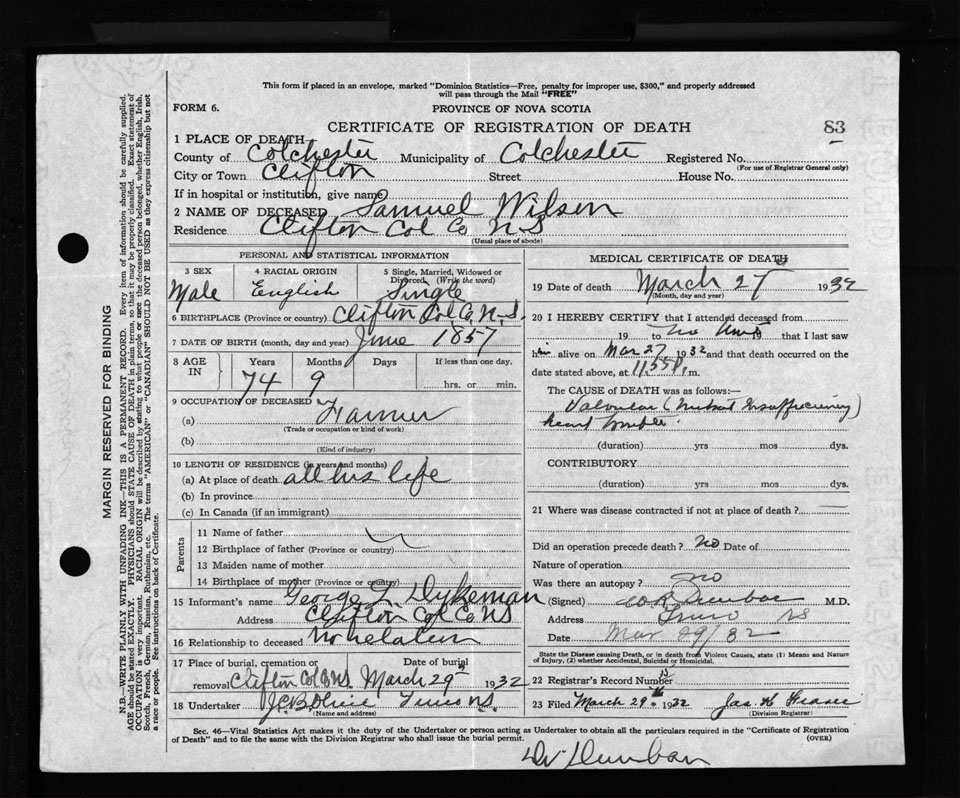 This form if placed in an envelope, marked "Dominion Statistics—Free, penalty for improper use, $300," and properly addressed
will pass through the Mail "FREE"
FORM 6.
PROVINCE OF NOVA SCOTIA
CERTIFICATE OF REGISTRATION OF DEATH
83
1 PLACE OF DEATH—
County of Colchester Municipality of Colchester Registered No.
(For use of Registrar General only)
City or Town Clifton Street House No.
If in hospital or institution, give name
2 NAME OF DECEASED Samuel Wilson
Residence Clifton Col Co N S
(Usual place of abode)
PERSONAL AND STATISTICAL INFORMATION
3 SEX 4 RACIAL ORIGIN 5 Single, Married, Widowed or Divorced. (Write the word)
Male English Single
6 BIRTHPLACE (Province or country) Clifton Col. Co. N.S.
7 DATE OF BIRTH (month, day and year) June 1857
8 AGE IN Years Months Days If less than one day.
74 9 hrs. or min.
9 OCCUPATION OF DECEASED
(a) Farmer
(Trade or occupation or kind of work)
(b)
(Kind of industry)
10 LENGTH OF RESIDENCE (in years and months)
(a) At place of death all his life
(b) In province
(c) In Canada (if an immigrant)
Parents
11 Name of father
12 Birthplace of father (Province or country)
13 Maiden name of mother
14 Birthplace of mother (Province or country)
15 Informant's name George L Dykeman
Address Clifton Col Co NS
16 Relationship to deceased No relation
17 Place of burial, cremation or removal Date of burial
Clifton Col Co NS. March 29 1932
18 Undertaker Truro NS.
(Name and address)
MEDICAL CERTIFICATE OF DEATH
19 Date of death March 27 1932
(Month, day and year)
20 I HEREBY CERTIFY that I attended deceased from
19 to 19 that I last saw
him alive on Mar 27 1932 and that death occurred on
date stated above, at 11.55 P. m.
The CAUSE of DEATH was as follows:—
Valvular (Mitral Insufficiency)
heart trouble.
(duration) yrs mos dys.
CONTRIBUTORY
(duration) yrs. mos. dys.
21 Where was disease contracted if not at place of death?
Did an operation precede death? No Date of
Nature of operation
Was there an autopsy? no
(Signed) Dunbar M.D.
Address Truro NS
Date Mar 29/32
State the Disease causing Death, or in death from Violent Causes, state (1) Means and Nature of Injury, (2) whether Accidental, Suicidal or Homicidal.
22 Registrar's Record Number 13
23 Filed March 29th 1932 Jas. H Fraser
(Division Registrar)
Sec. 46—Vital Statistics Act makes it the duty of the Undertaker or person acting as Undertaker to obtain all the particulars required in the "Certificate of Registration
of Death" and to file the same with the Division Registrar who shall issue the burial permit.
(OVER)
Dr Dunbar
MARGIN RESERVED FOR BINDING
N.B.—WRITE PLAINLY WITH UNFADING INK—THIS IS A PERMANENT RECORD. Every item of information should be carefully supplied.
AGE should be stated EXACTLY. PHYSICIANS should STATE CAUSE OF DEATH in plain terms, so that it may be properly classified. Exact statement of
OCCUPATION is very important. RACIAL ORIGIN will be described by stating to what people or race the deceased person belonged, whether English, Irish,
Scotch, French, German, Russian, Ruthenian, etc. The terms "AMERICAN" or "CANADIAN" SHOULD NOT BE USED as they express citizenship but not
a race or people. See instructions on back of Certificate.